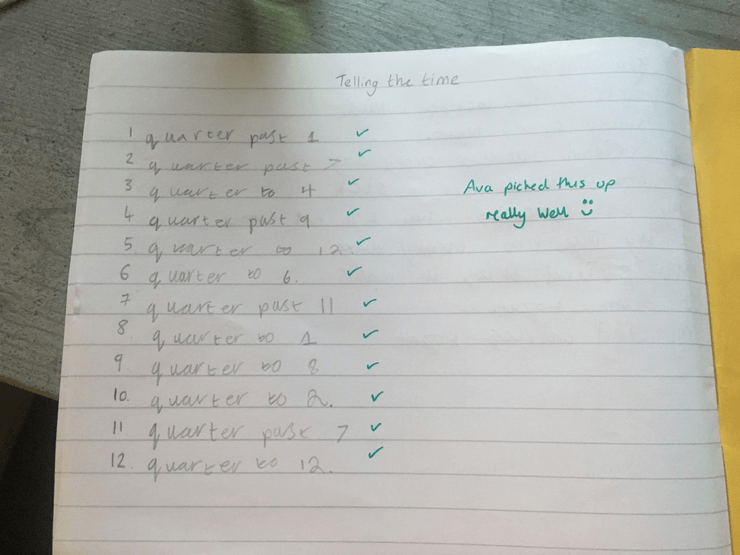 Telling the time
1 quarter past 1 ✓
2 quarter past 7 ✓
3 quarter to 4 ✓
4 quarter past 9 ✓
5 quarter to 12. ✓
6 quarter to 6. ✓
7 quarter past 11 ✓
8 quarter to 1 ✓
9 quarter to 8 ✓
10. quarter to 2. ✓
11 quarter past 7 ✓
12. quarter to 12. ✓
Ava picked this up
really well